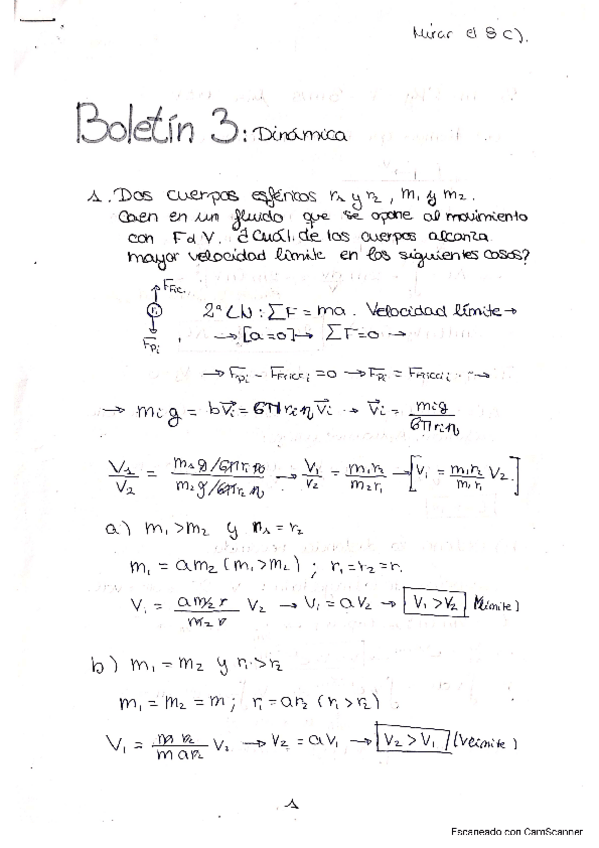 Mirar el 8 c).
Boletín 3: Dinámica
1. Dos cuerpos esféricos r₁ y r₂, m₁ y m₂.
Caen en un fluido que se opone al movimiento
con F α V. ¿Cuál de los cuerpos alcanza
mayor velocidad límite en los siguientes casos?
F Fric.
2ª LN: ΣF = ma. Velocidad límite →
F Pi → [a=0] → ΣF=0 →
→ F Pi - F Fricci = 0 → F Pi = F Fricci →
→ mi g = bVi = 6πriηVi → Vi = mig / 6πriη
V₁/V₂ = m₁g/6πr₁η / m₂g/6πr₂η → V₁/V₂ = m₁r₂/m₂r₁ → [V₁ = m₁r₂/m₂r₁ V₂.]
a) m₁>m₂ y r₁ = r₂
m₁ = am₂ (m₁>m₂) ; r₁=r₂=r.
V₁ = am₂ r / m₂ r V₂ → V₁ = aV₂ → V₁>V₂ (Vlímite)
b) m₁ = m₂ y r₁>r₂
m₁ = m₂ = m ; r₁ = ar₂ (r₁>r₂)
V₁ = m r₂ / m ar₂ V₂ → V₂ = aV₁ → V₂>V₁ (Vlímite)
1
Escaneado con CamScanner